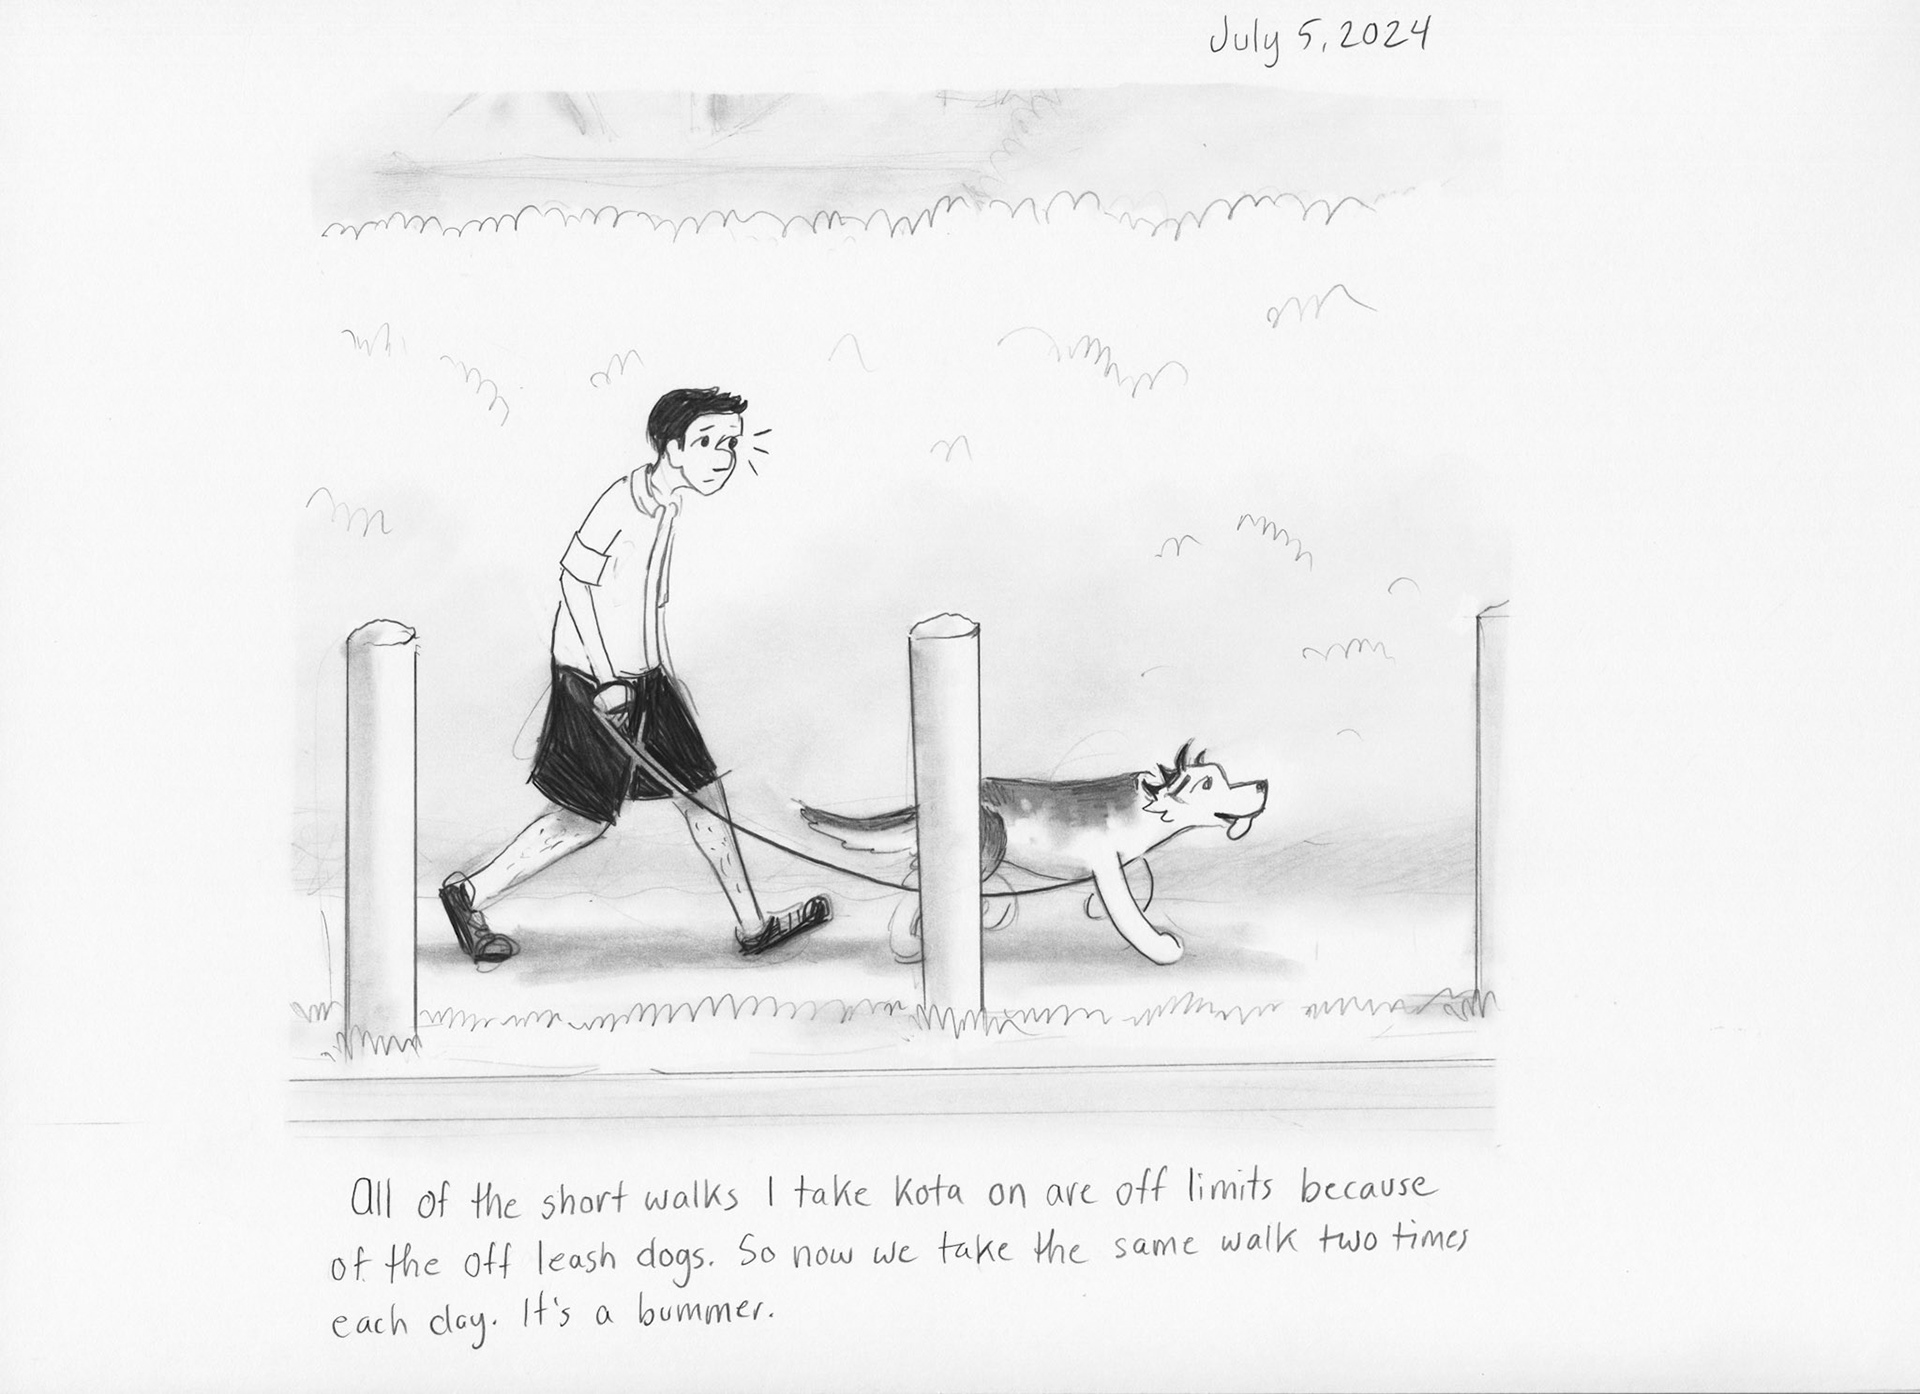 July 5, 2024
All of the short walks I take Kota on are off limits because
of the off leash dogs. So now we take the same walk two times
each day. It's a bummer.